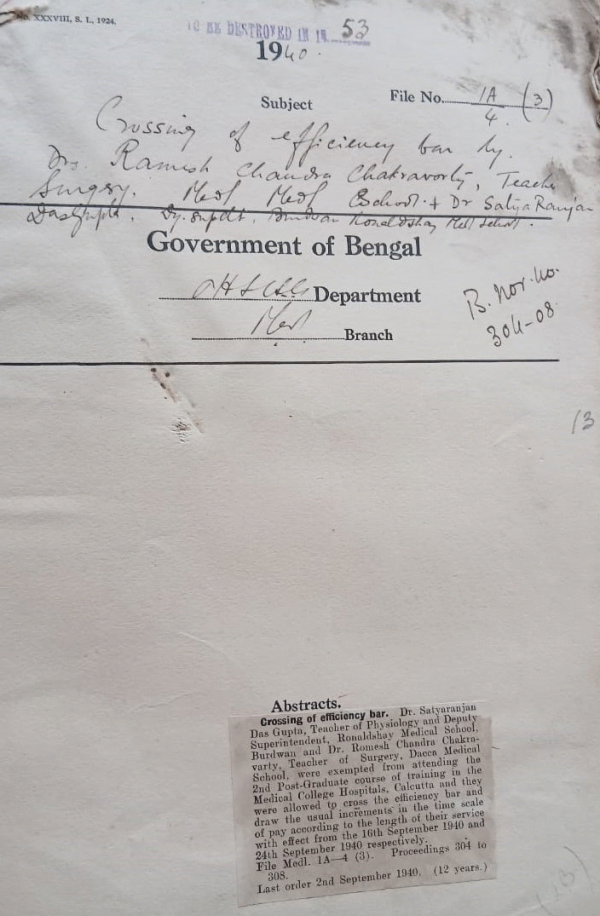 No. XXXVIII, S. I., 1924.
TO BE DESTROYED IN 19 53
1940.
Subject
File No. 1A (3)
4.
Crossing of efficiency bar by.
Drs. Ramesh Chandra Chakravorty, Teacher
Surgery. Medl School & Dr Satya Ranjan
Dasgupta. Dy. Supdt. Burdwan Ronaldshay Med School.
Government of Bengal
Department
Medl
Branch
B. Nov. No.
304-08.
13
Abstracts.
Crossing of efficiency bar. Dr. Satyaranjan
Das Gupta, Teacher of Physiology and Deputy
Superintendent, Ronaldshay Medical School,
Burdwan and Dr. Romesh Chandra Chakra-
varty, Teacher of Surgery, Dacca Medical
School, were exempted from attending the
2nd Post-Graduate course of training in the
Medical College Hospitals, Calcutta and they
were allowed to cross the efficiency bar and
draw the usual increments in the time scale
of pay according to the length of their service
with effect from the 16th September 1940 and
24th September 1940 respectively.
File Medl. 1A—4 (3). Proceedings 304 to
308.
Last order 2nd September 1940. (12 years.)